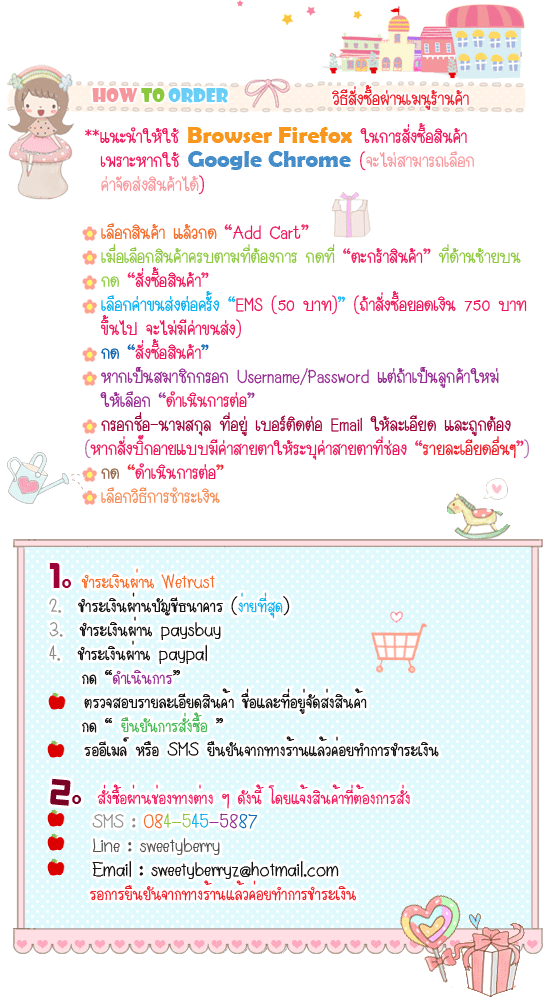 HOW TO ORDER
วิธีสั่งซื้อผ่านเมนูร้านค้า
**แนะนำให้ใช้ Browser Firefox ในการสั่งซื้อสินค้า
เพราะหากใช้ Google Chrome (จะไม่สามารถเลือก
ค่าจัดส่งสินค้าได้)
เลือกสินค้า แล้วกด “Add Cart”
เมื่อเลือกสินค้าครบตามที่ต้องการ กดที่ “ตะกร้าสินค้า” ที่ด้านซ้ายบน
กด “สั่งซื้อสินค้า”
เลือกค่าขนส่งต่อครั้ง “EMS (50 บาท)” (ถ้าสั่งซื้อยอดเงิน 750 บาท
ขึ้นไป จะไม่มีค่าขนส่ง)
กด “สั่งซื้อสินค้า”
หากเป็นสมาชิกกรอก Username/Password แต่ถ้าเป็นลูกค้าใหม่
ให้เลือก “ดำเนินการต่อ”
กรอกชื่อ-นามสกุล ที่อยู่ เบอร์ติดต่อ Email ให้ละเอียด และถูกต้อง
(หากสั่งบิ๊กอายแบบมีค่าสายตาให้ระบุค่าสายตาที่ช่อง “รายละเอียดอื่นๆ”)
กด “ดำเนินการต่อ”
เลือกวิธีการชำระเงิน
1. ชำระเงินผ่าน Wetrust
2. ชำระเงินผ่านบัญชีธนาคาร (ง่ายที่สุด)
3. ชำระเงินผ่าน paysbuy
4. ชำระเงินผ่าน paypal
กด “ดำเนินการ”
ตรวจสอบรายละเอียดสินค้า ชื่อและที่อยู่จัดส่งสินค้า
กด “ ยืนยันการสั่งซื้อ ”
รออีเมล์ หรือ SMS ยืนยันจากทางร้านแล้วค่อยทำการชำระเงิน
2. สั่งซื้อผ่านช่องทางต่าง ๆ ดังนี้ โดยแจ้งสินค้าที่ต้องการสั่ง
SMS : 084-545-5887
Line : sweetyberry
Email : sweetyberryz@hotmail.com
รอการยืนยันจากทางร้านแล้วค่อยทำการชำระเงิน